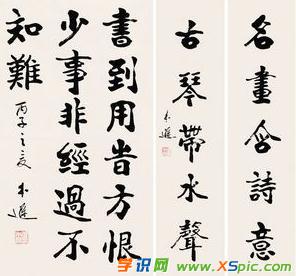 名畫含詩意
古琴帶水聲
書到用旹方恨
少事非經過不
知難
丙子之夏
学识网
www.XSpic.com